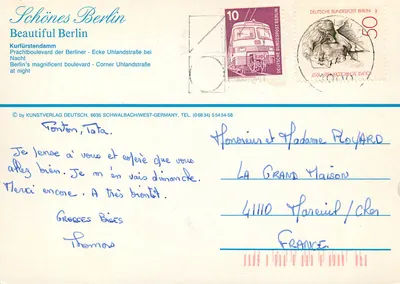 Schönes Berlin
Beautiful Berlin
Kurfürstendamm
Prachtboulevard der Berliner - Ecke Uhlandstraße bei
Nacht
Berlin's magnificent boulevard - Corner Uhlandstraße
at night
10
50
DEUTSCHE BUNDESPOST BERLIN
© by KUNSTVERLAG DEUTSCH, 6635 SCHWALBACH/WEST-GERMANY, TEL.
Tonton, Tata.
Je pense à vous et espère que vous
allez bien. Je m'en vais dimanche.
Merci encore. A très bientôt.
Grosses Bises
Thomas
Monsieur et Madame
LA GRAND MAISON
41110 Mareuil / Cher
FRANCE